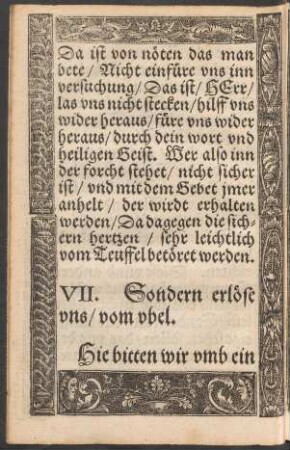 Da ist von nöten das man
bete/ Nicht einfüre vns inn
versuchung/ Das ist/ HErr/
las vns nicht stecken/ hilff vns
wider heraus/ füre vns wider
heraus/ durch dein wort vnd
heiligen Geist. Wer also inn
der forcht stehet/ nicht sicher
ist/ vnd mit dem Gebet jmer
anhelt/ der wirdt erhalten
werden/ Da dagegen die sich-
ern hertzen/ sehr leichtlich
vom Teuffel betöret werden.
VII. Sondern erlöse
vns/ vom vbel.
Hie bitten wir vmb ein